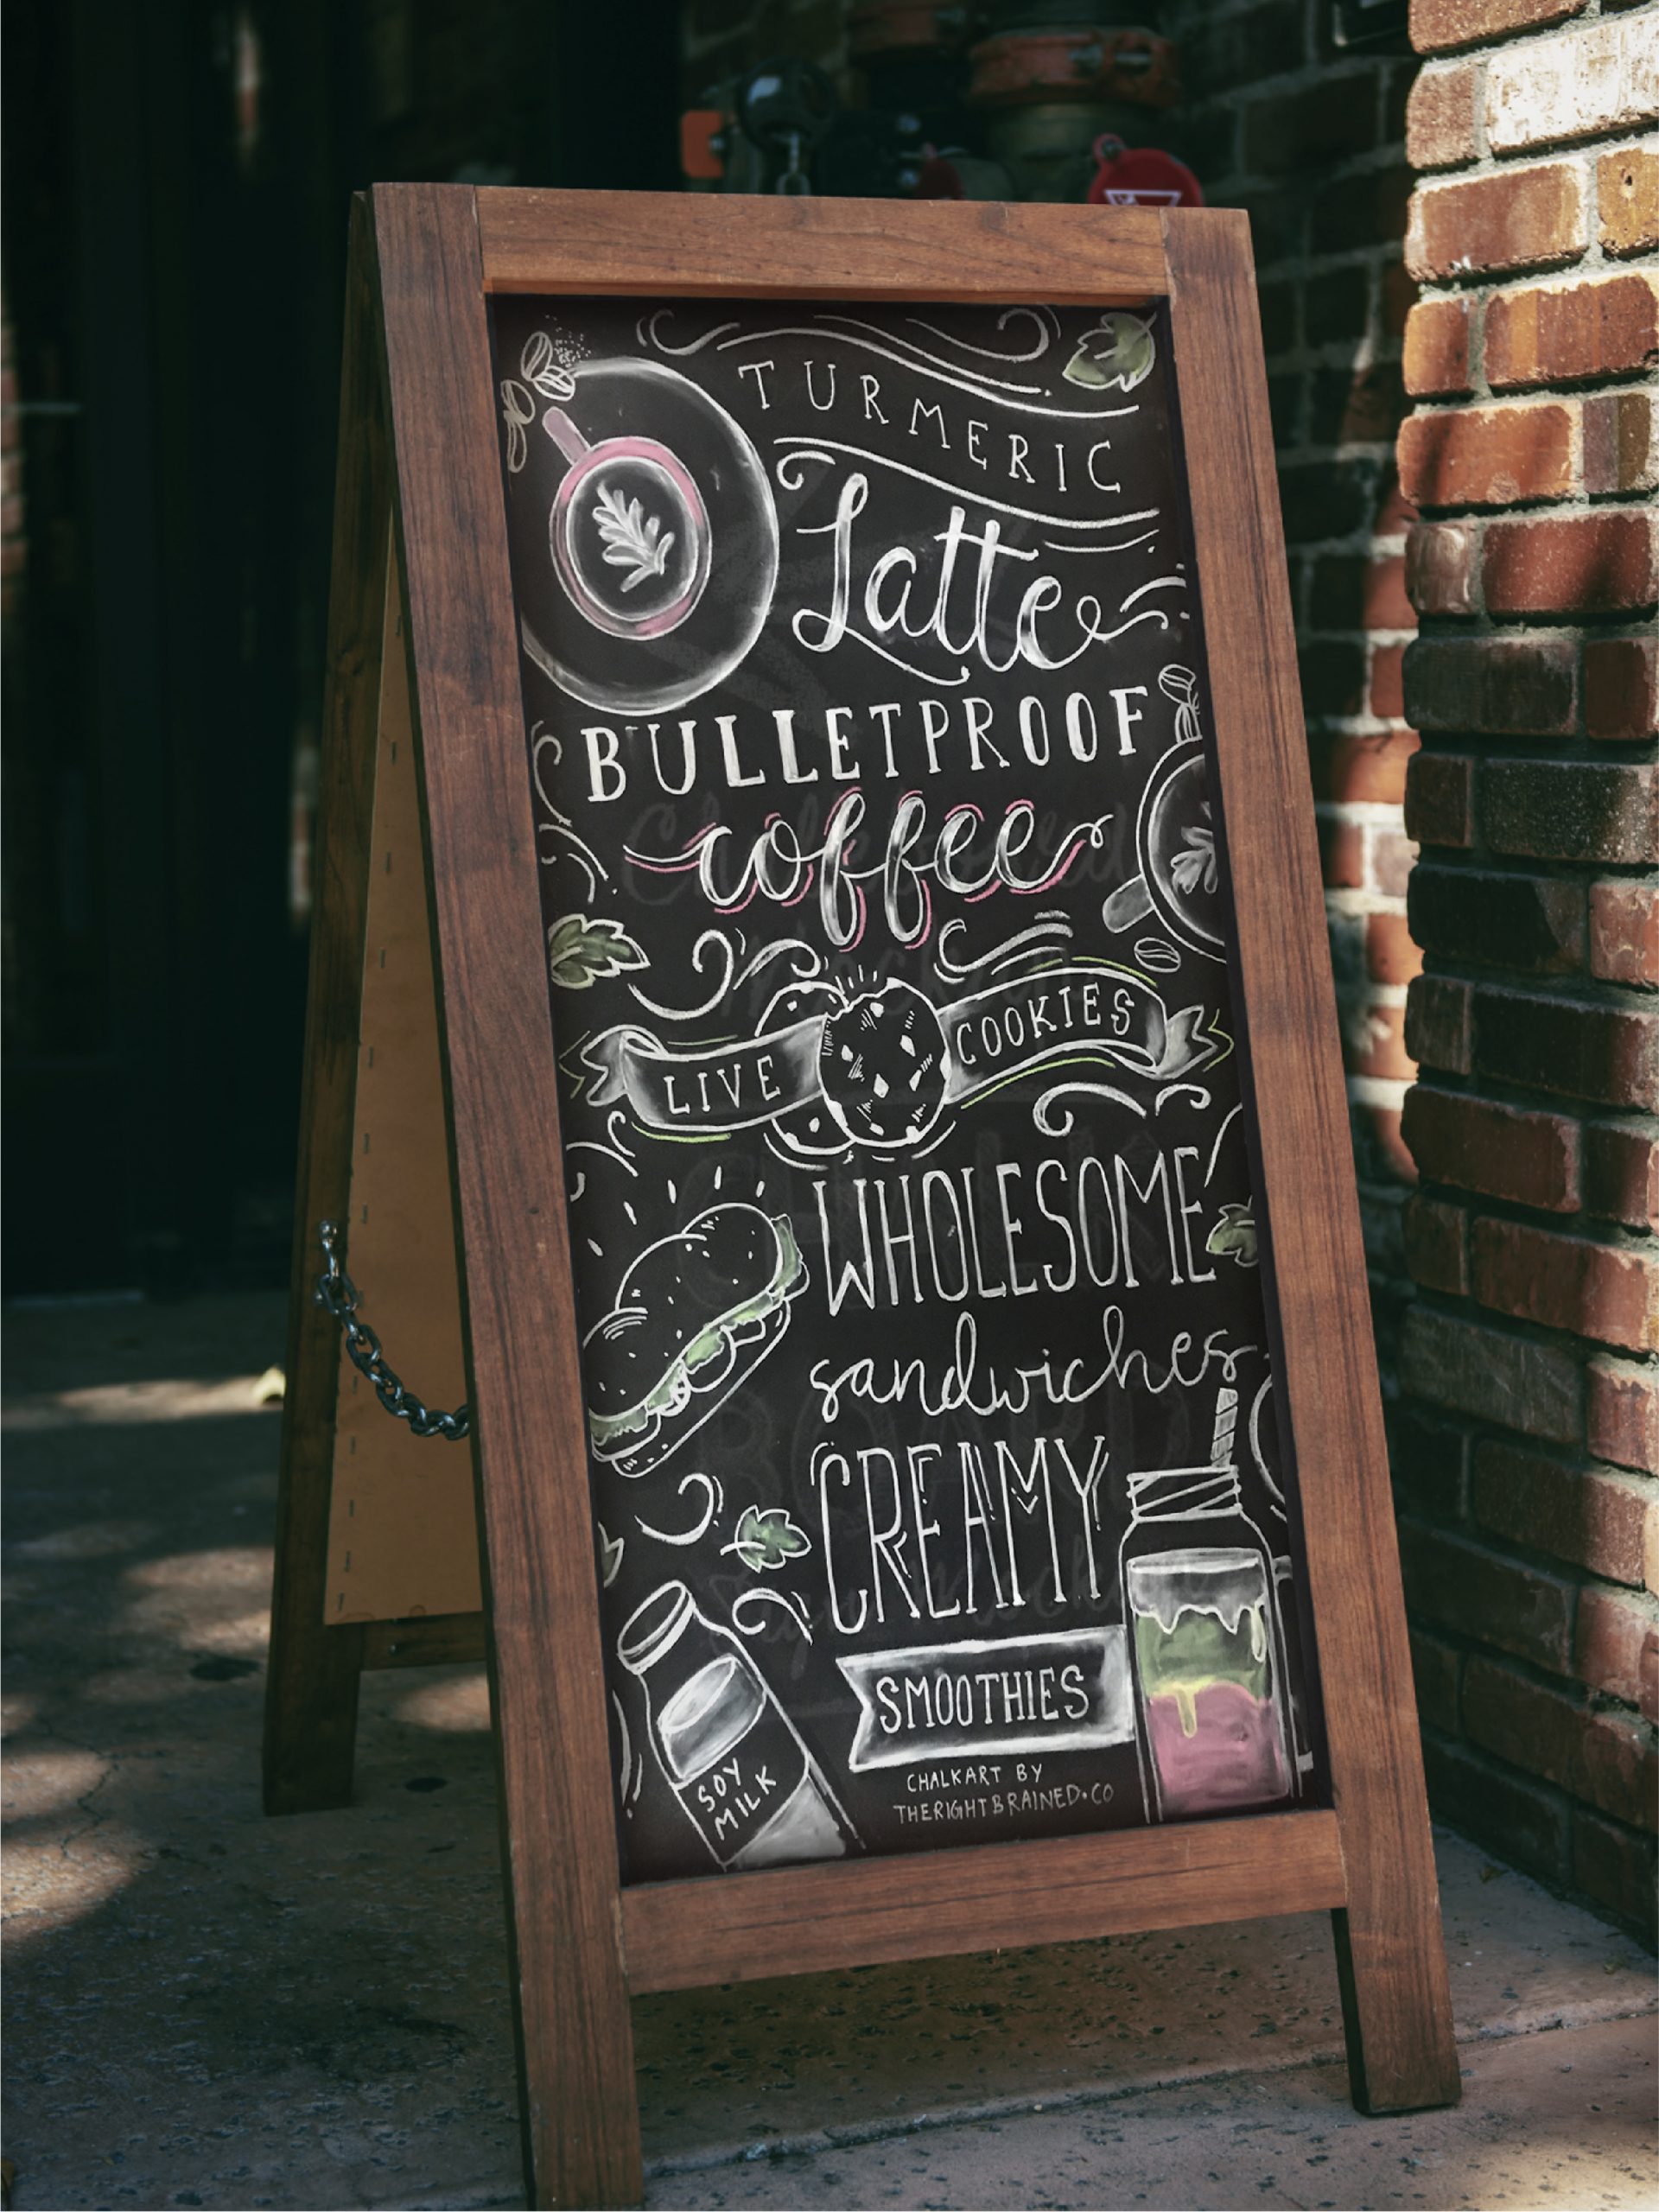 TURMERIC
Latte
BULLETPROOF
coffee
LIVE COOKIES
WHOLESOME
sandwiches
CREAMY
SMOOTHIES
SOY
MILK
CHALKART BY
THERIGHTBRAINED.CO